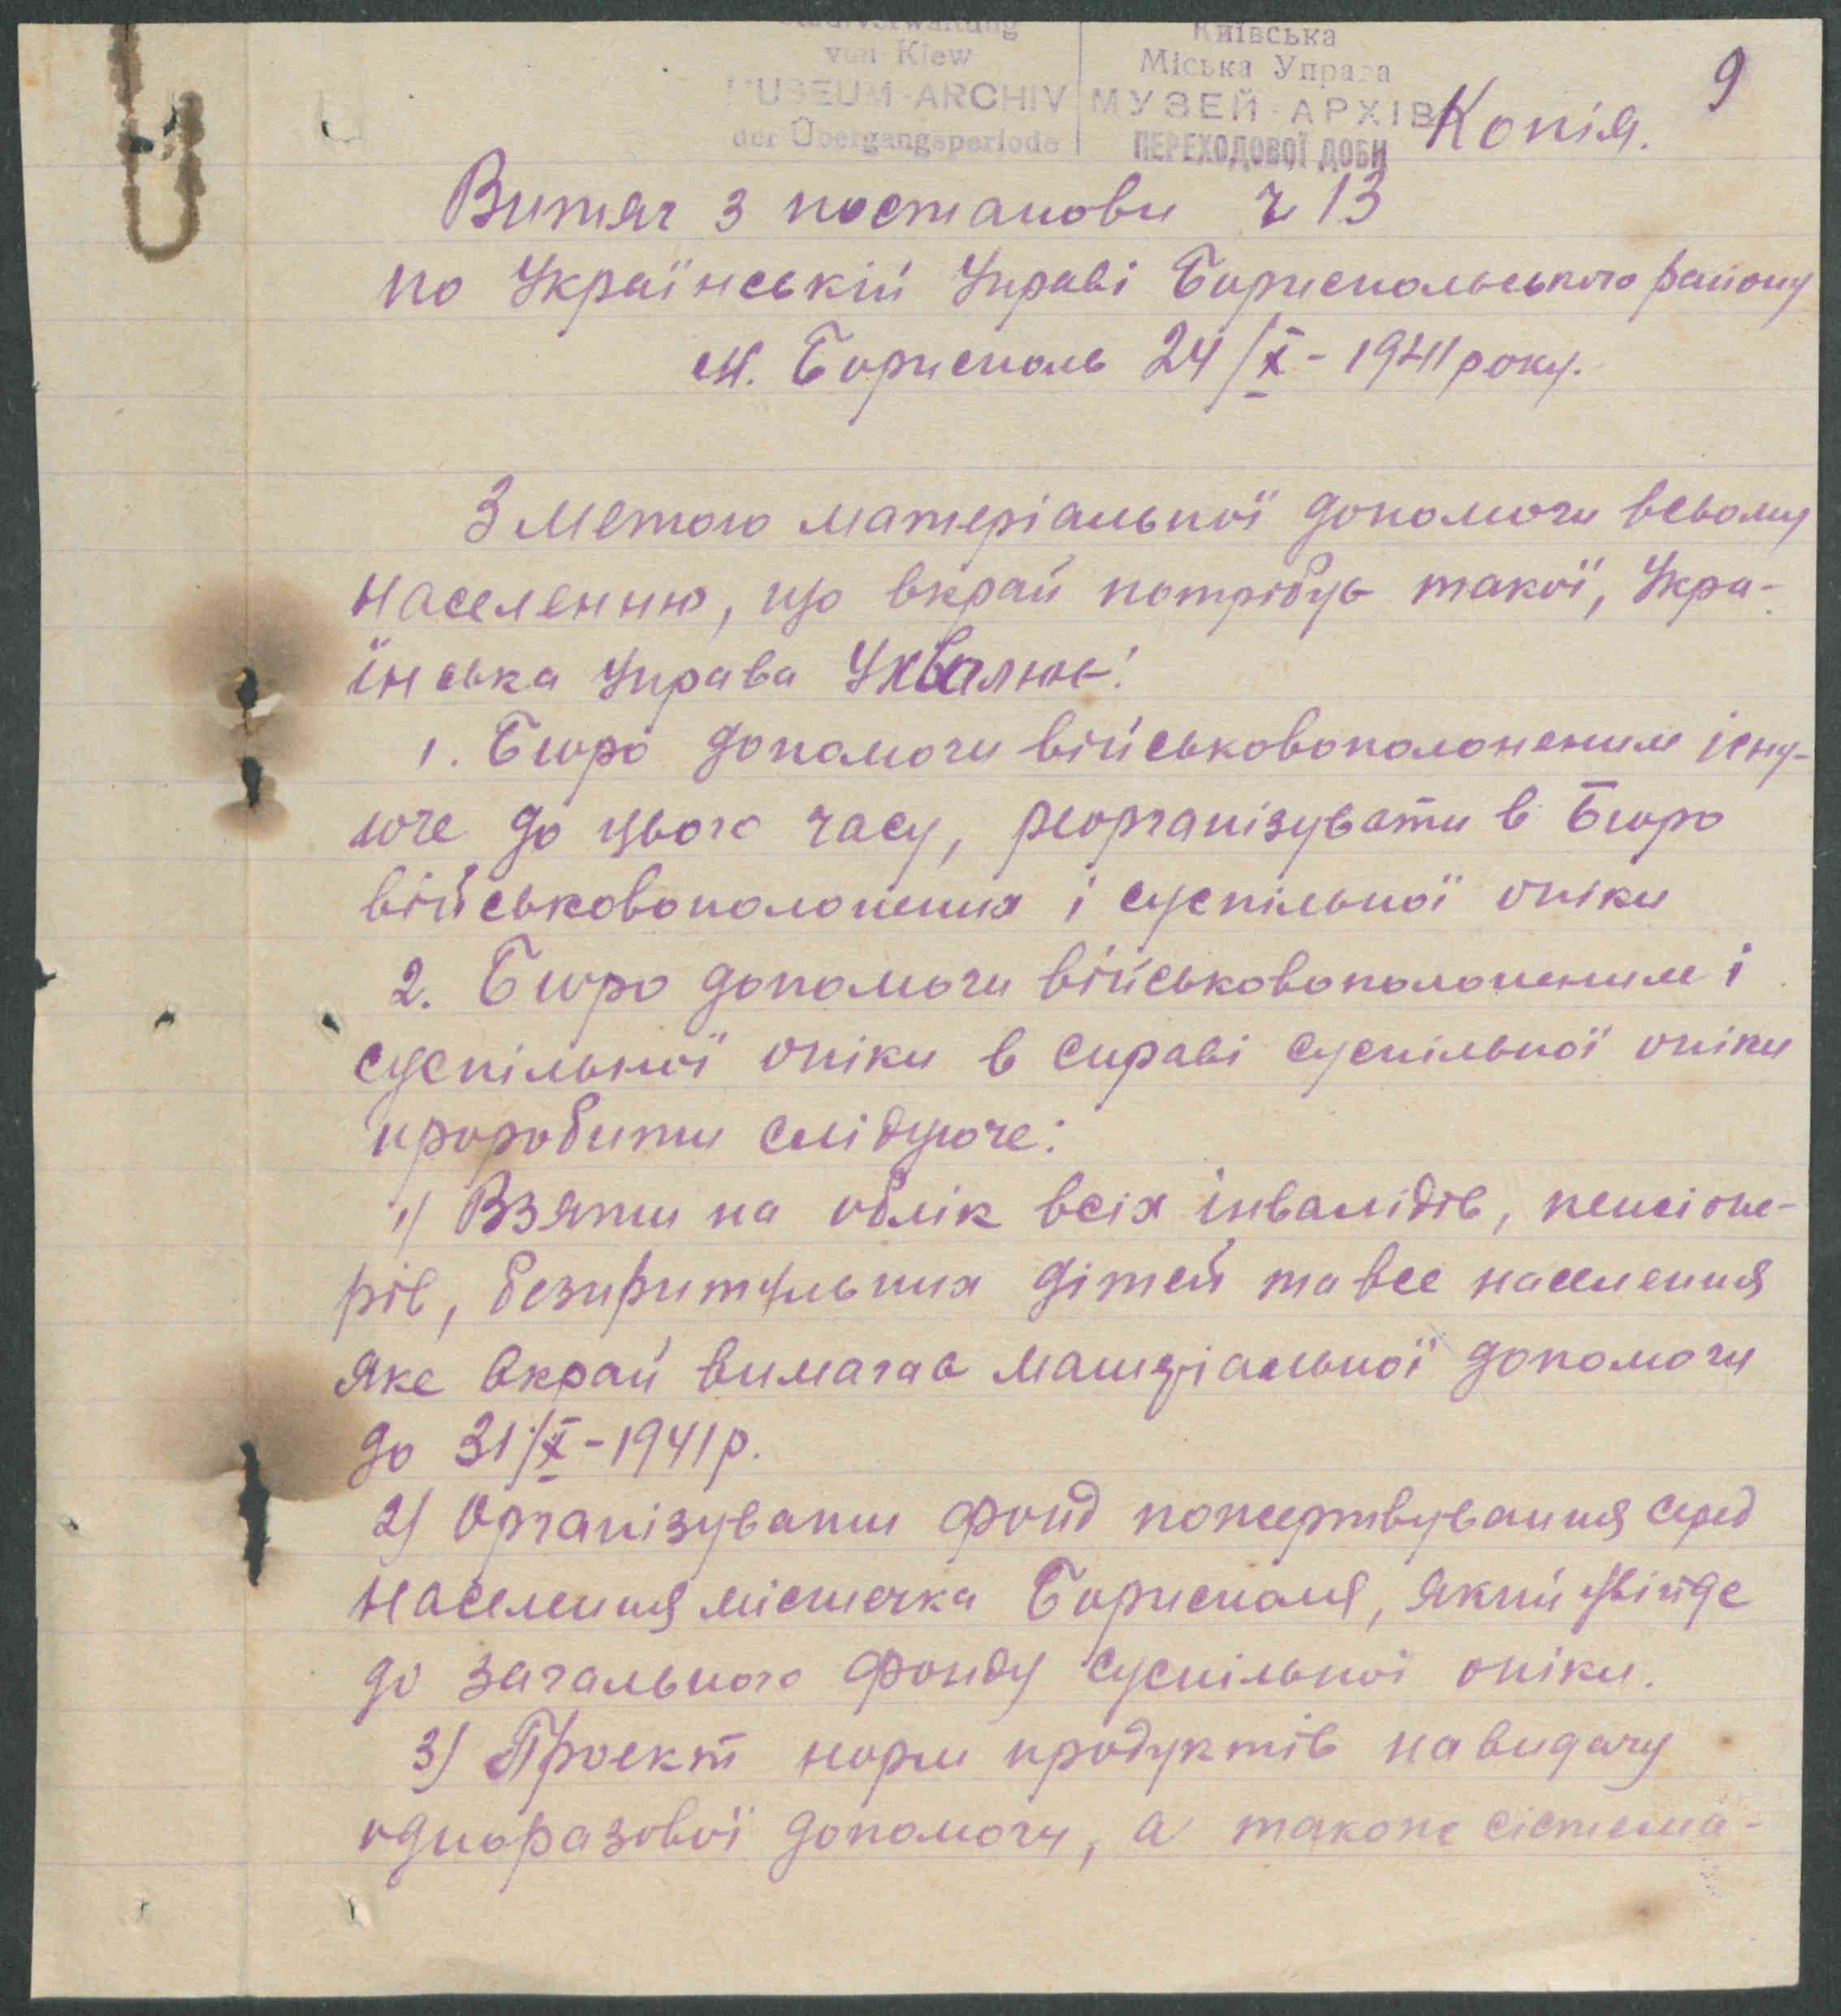 Stadtverwaltung
von Kiew
MUSEUM-ARCHIV
der Übergangsperiode
Київська
Міська Управа
МУЗЕЙ-АРХІВ
ПЕРЕХОДОВОЇ ДОБИ
9
Копія.
Витяг з постанови ч 13
по Українській Управі Бориспольського району
м. Бориспoль 24/X - 1941 року.
З метою матеріальної допомоги всьому
населенню, що вкрай потрібує такої, Укра-
їнська Управа Ухвалює:
1. Бюро допомоги військовополоненим існу-
юче до цього часу, реорганізувати в Бюро
військовополонених і суспільної опіки
2. Бюро допомоги військовополоненим і
суспільної опіки в справі суспільної опіки
проробити слідуюче:
1) Взяти на облік всіх інвалідів, пенсіоне-
рів, безпритульних дітей та все населення
яке вкрай вимагає матеріальної допомоги
до 31/X - 1941 р.
2) Організувати фонд пожертвування серед
населення містечка Борисполя, який увійде
до загального фонду суспільної опіки.
3) Проект норм продуктів на видачу
одноразової допомоги, а також сістема-